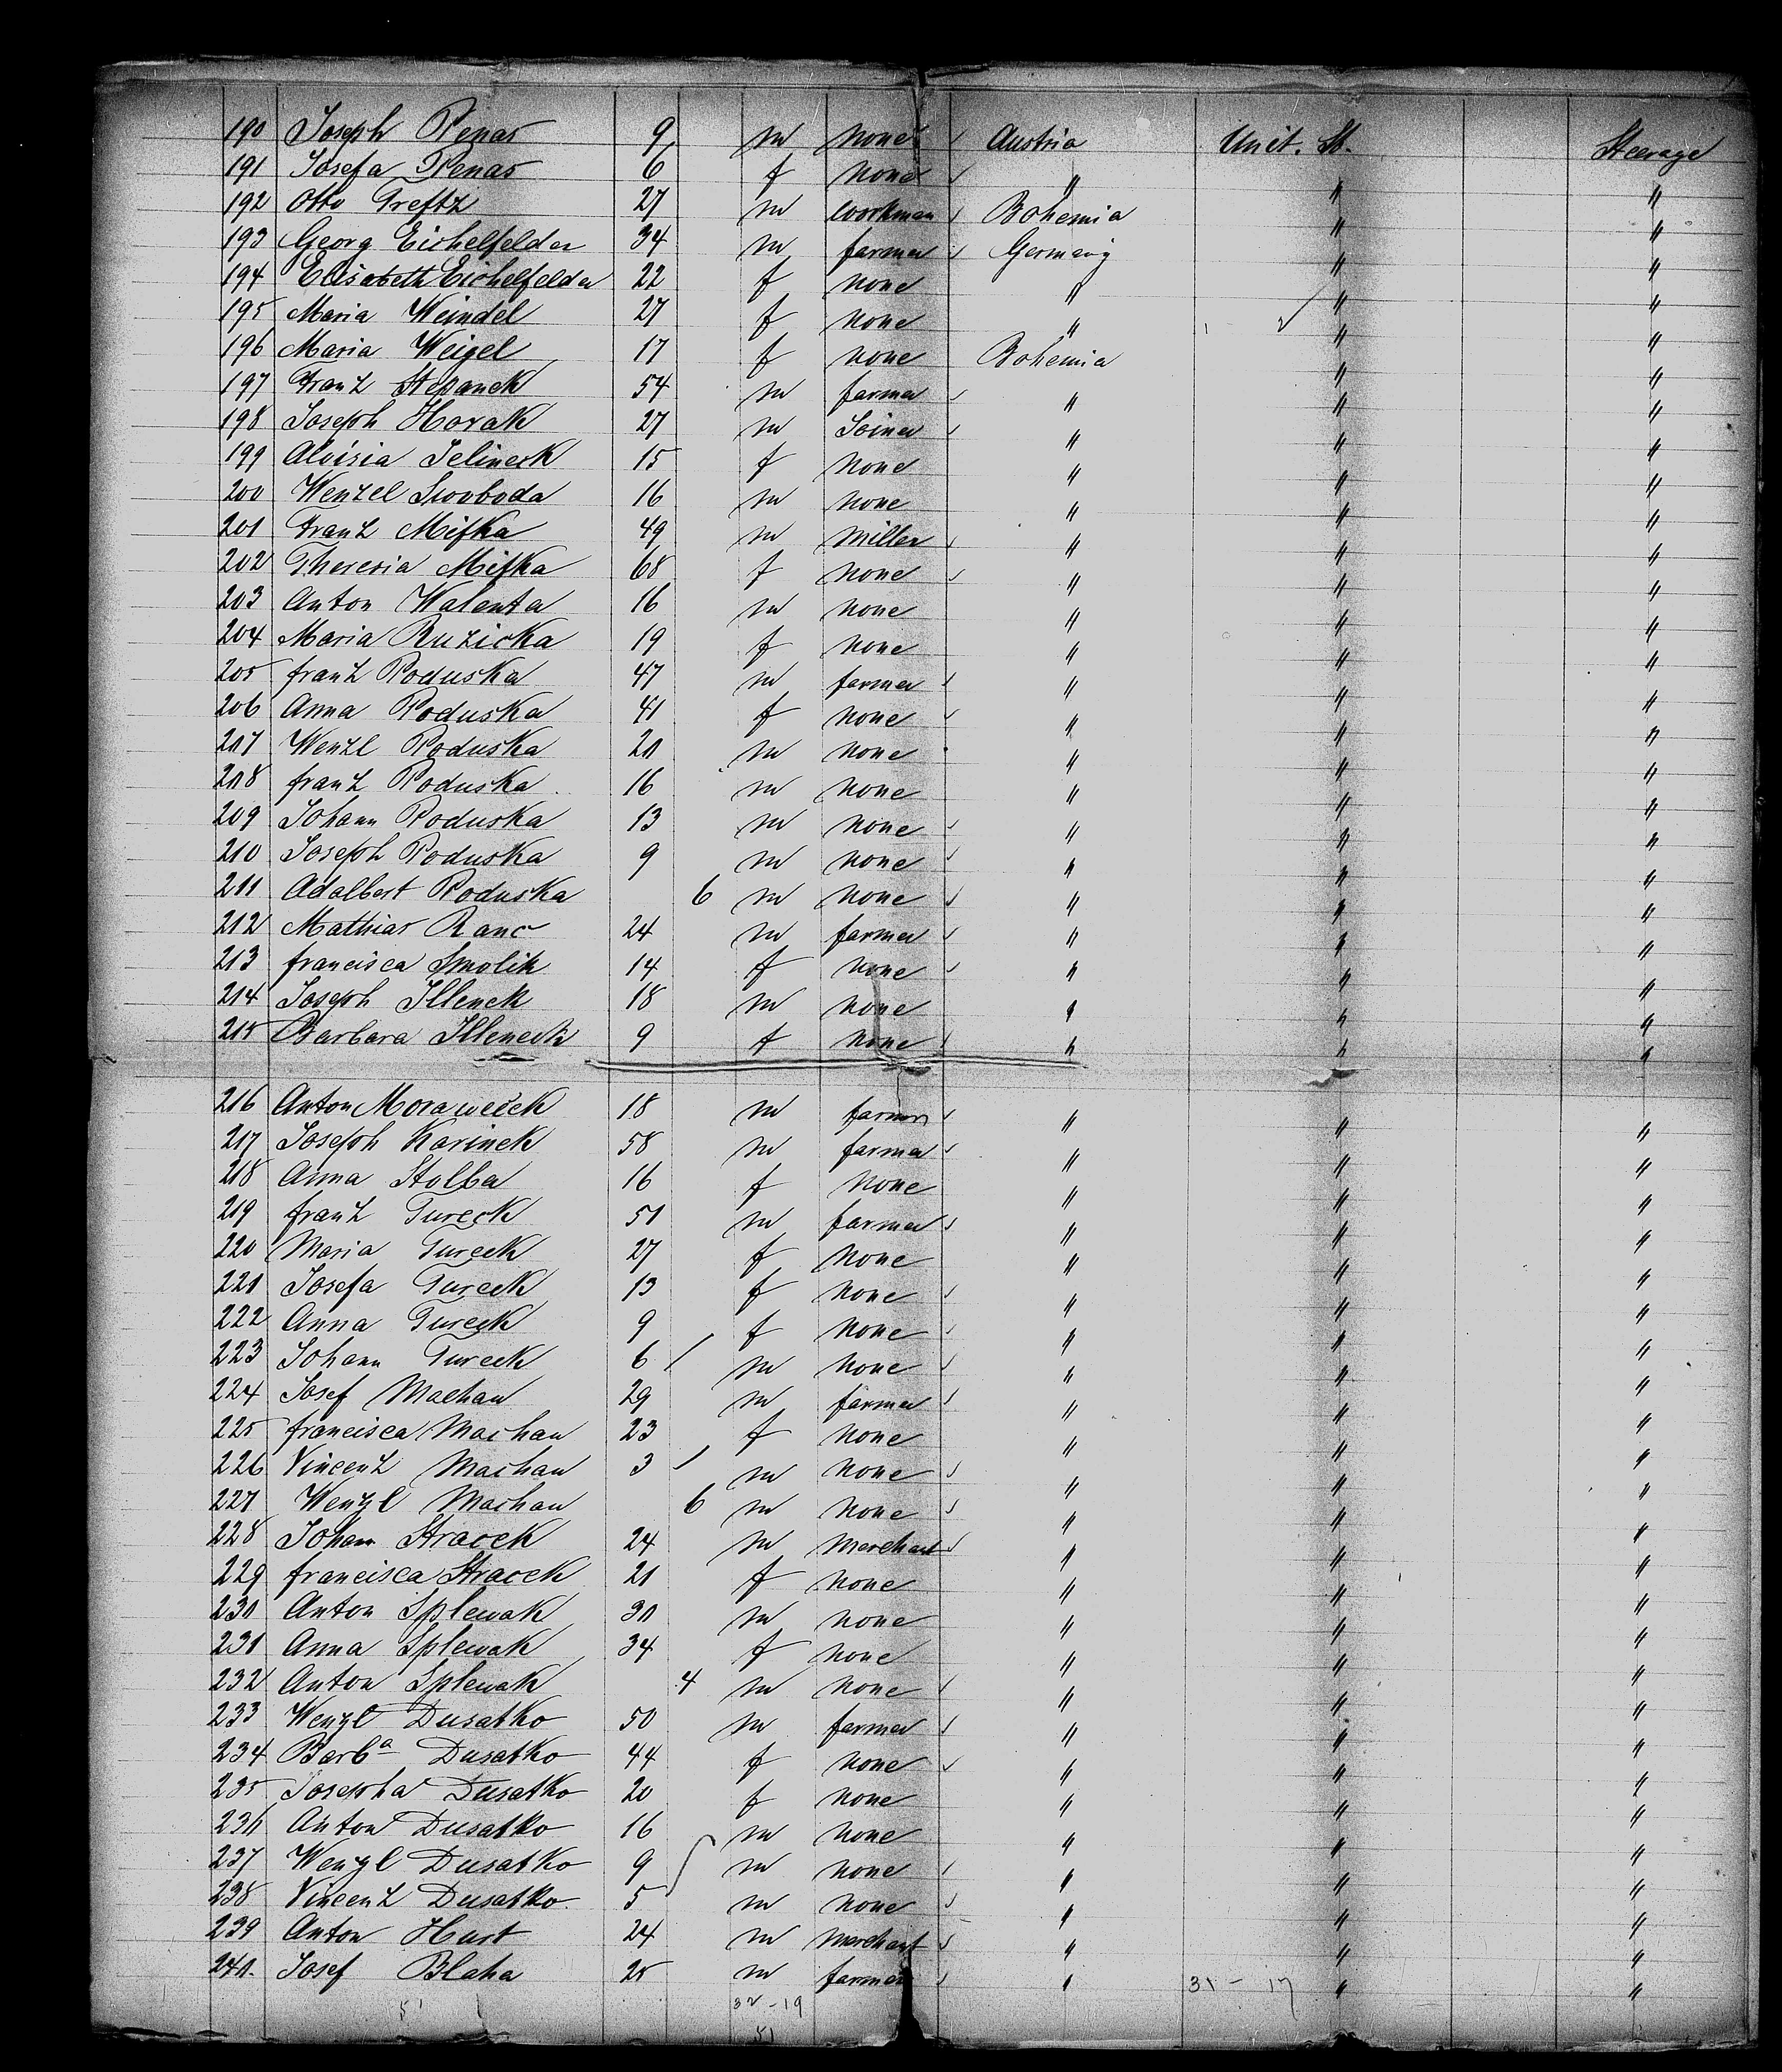 190 Joseph Penas 9 m none Austria Unit. St. Steerage
191 Josefa Penas 6 f none " " "
192 Otto Treftz 27 m workman Bohemia " "
193 Georg Eichelfelder 34 m farmer Germany " "
194 Elisabeth Eichelfelder 22 f none " " "
195 Maria Weindel 27 f none " " "
196 Maria Weigel 17 f none Bohemia " "
197 Franz Stepanek 54 m farmer " " "
198 Joseph Horak 27 m Joiner " " "
199 Aloisia Jelineck 15 f none " " "
200 Wenzel Swoboda 16 m none " " "
201 Franz Mifka 49 m miller " " "
202 Theresia Mifka 68 f none " " "
203 Anton Walenta 16 m none " " "
204 Maria Ruzicka 19 f none " " "
205 franz Poduska 47 m farmer " " "
206 Anna Poduska 41 f none " " "
207 Wenzl Poduska 20 m none " " "
208 franz Poduska 16 m none " " "
209 Johann Poduska 13 m none " " "
210 Joseph Poduska 9 m none " " "
211 Adalbert Poduska 6 m none " " "
212 Mathias Ranc 24 m farmer " " "
213 francisca Smolik 14 f none " " "
214 Joseph Illenek 18 m none " " "
215 Barbara Illeneck 9 f none " " "
216 Anton Moraweček 18 m farmer " " "
217 Joseph Karinek 58 m farmer " " "
218 Anna Stolba 16 f none " " "
219 franz Tureck 51 m farmer " " "
220 Maria Tureck 27 f none " " "
221 Josefa Tureck 13 f none " " "
222 Anna Tureck 9 f none " " "
223 Johann Tureck 6 m none " " "
224 Josef Machan 29 m farmer " " "
225 francisca Machan 23 f none " " "
226 Vincenz Machan 3 m none " " "
227 Wenzl Machan 6 m none " " "
228 Johann Stracek 24 m merchant " " "
229 francisca Stracek 21 f none " " "
230 Anton Splewak 30 m none " " "
231 Anna Splewak 34 f none " " "
232 Anton Splewak 4 m none " " "
233 Wenzl Dusatko 50 m farmer " " "
234 Barbª Dusatko 44 f none " " "
235 Josepha Dusatko 20 f none " " "
236 Anton Dusatko 16 m none " " "
237 Wenzl Dusatko 9 m none " " "
238 Vincenz Dusatko. 5 m none " " "
239 Anton Hart 24 m merchant " " "
240. Josef Blaha 25 m farmer " " "
31 - 17
32 - 19
51